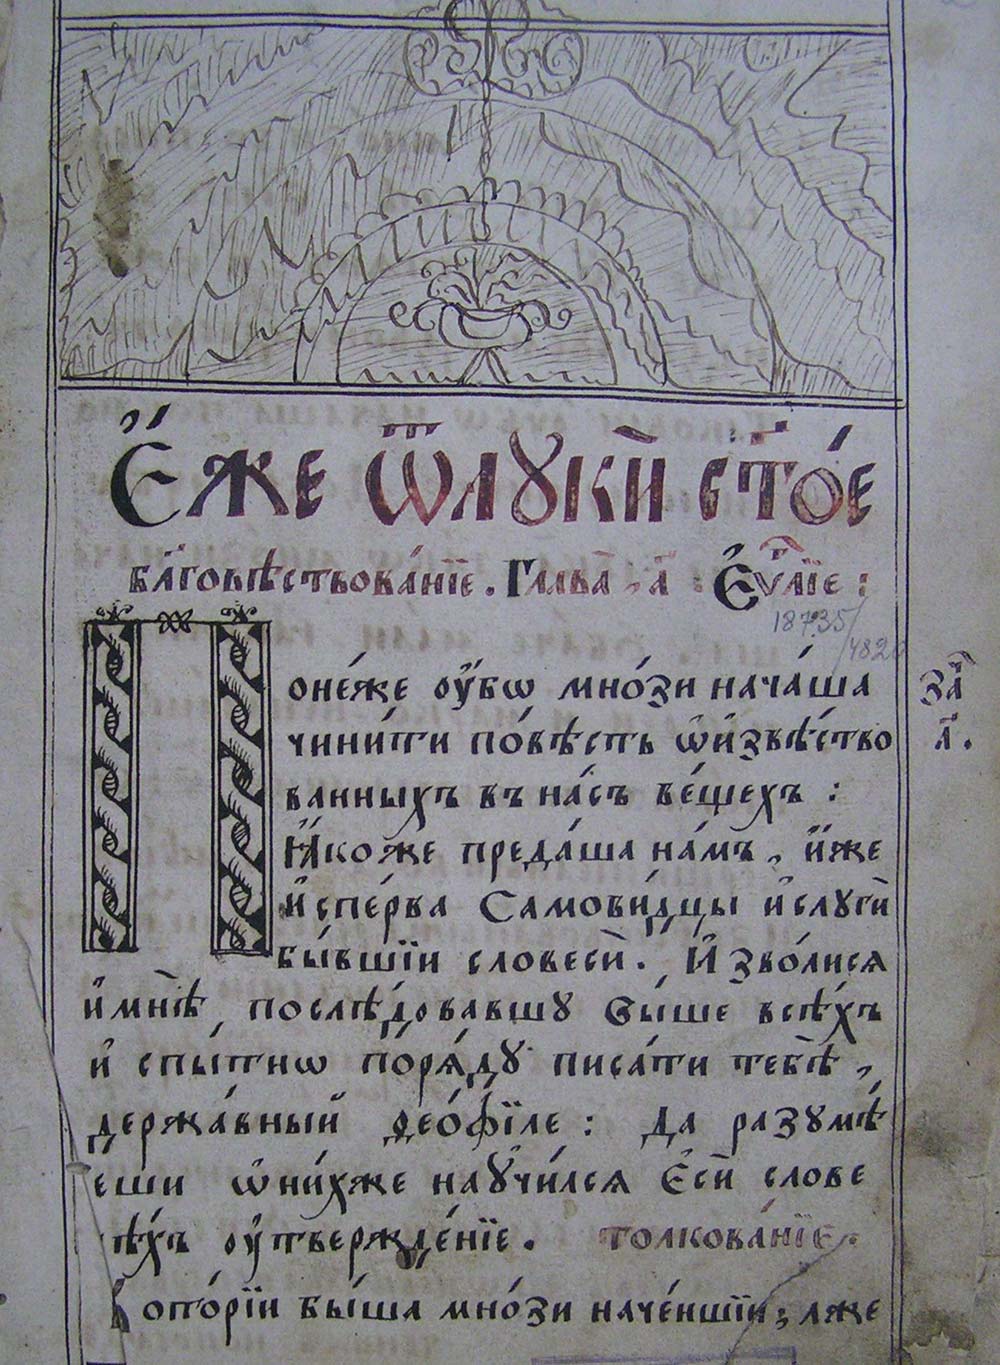 Е҆́же ѿ лꙋкѝ ст҃о́е
бл҃говѣствова́нїе. Глава̀, а҃: Е҆ѵⷢ҇лїе:
18735/4820
Поне́же оу҆́бѡ мно́зи нача́ша
за а҃.
чини́ти по́вѣсть ѡ҆ и҆звѣ́ство
ванныхъ въ на́съ ве́щехъ:
Ꙗ҆́коже преда́ша на́мъ, и҆̀же
и҆спе́рва самови́дцы и҆ слꙋгѝ
бы́вшїи словесѝ. И҆зво́лисѧ
и҆ мнѣ̀, послѣ́довавшꙋ вы́ше всѣ́хъ
и҆ спы́тнѡ по́рѧ́дꙋ писа́ти тебѣ̀,
держа́вный ѳео́фїле: да разꙋмѣ́
еши ѡ҆ ни́хже наꙋ҆чи́лсѧ є҆сѝ слове
сѣ́хъ оу҆твержде́нїе. толкова́нїе.
Кото́рїи бы́ша мно́зи наче́ншїи; ꙗже